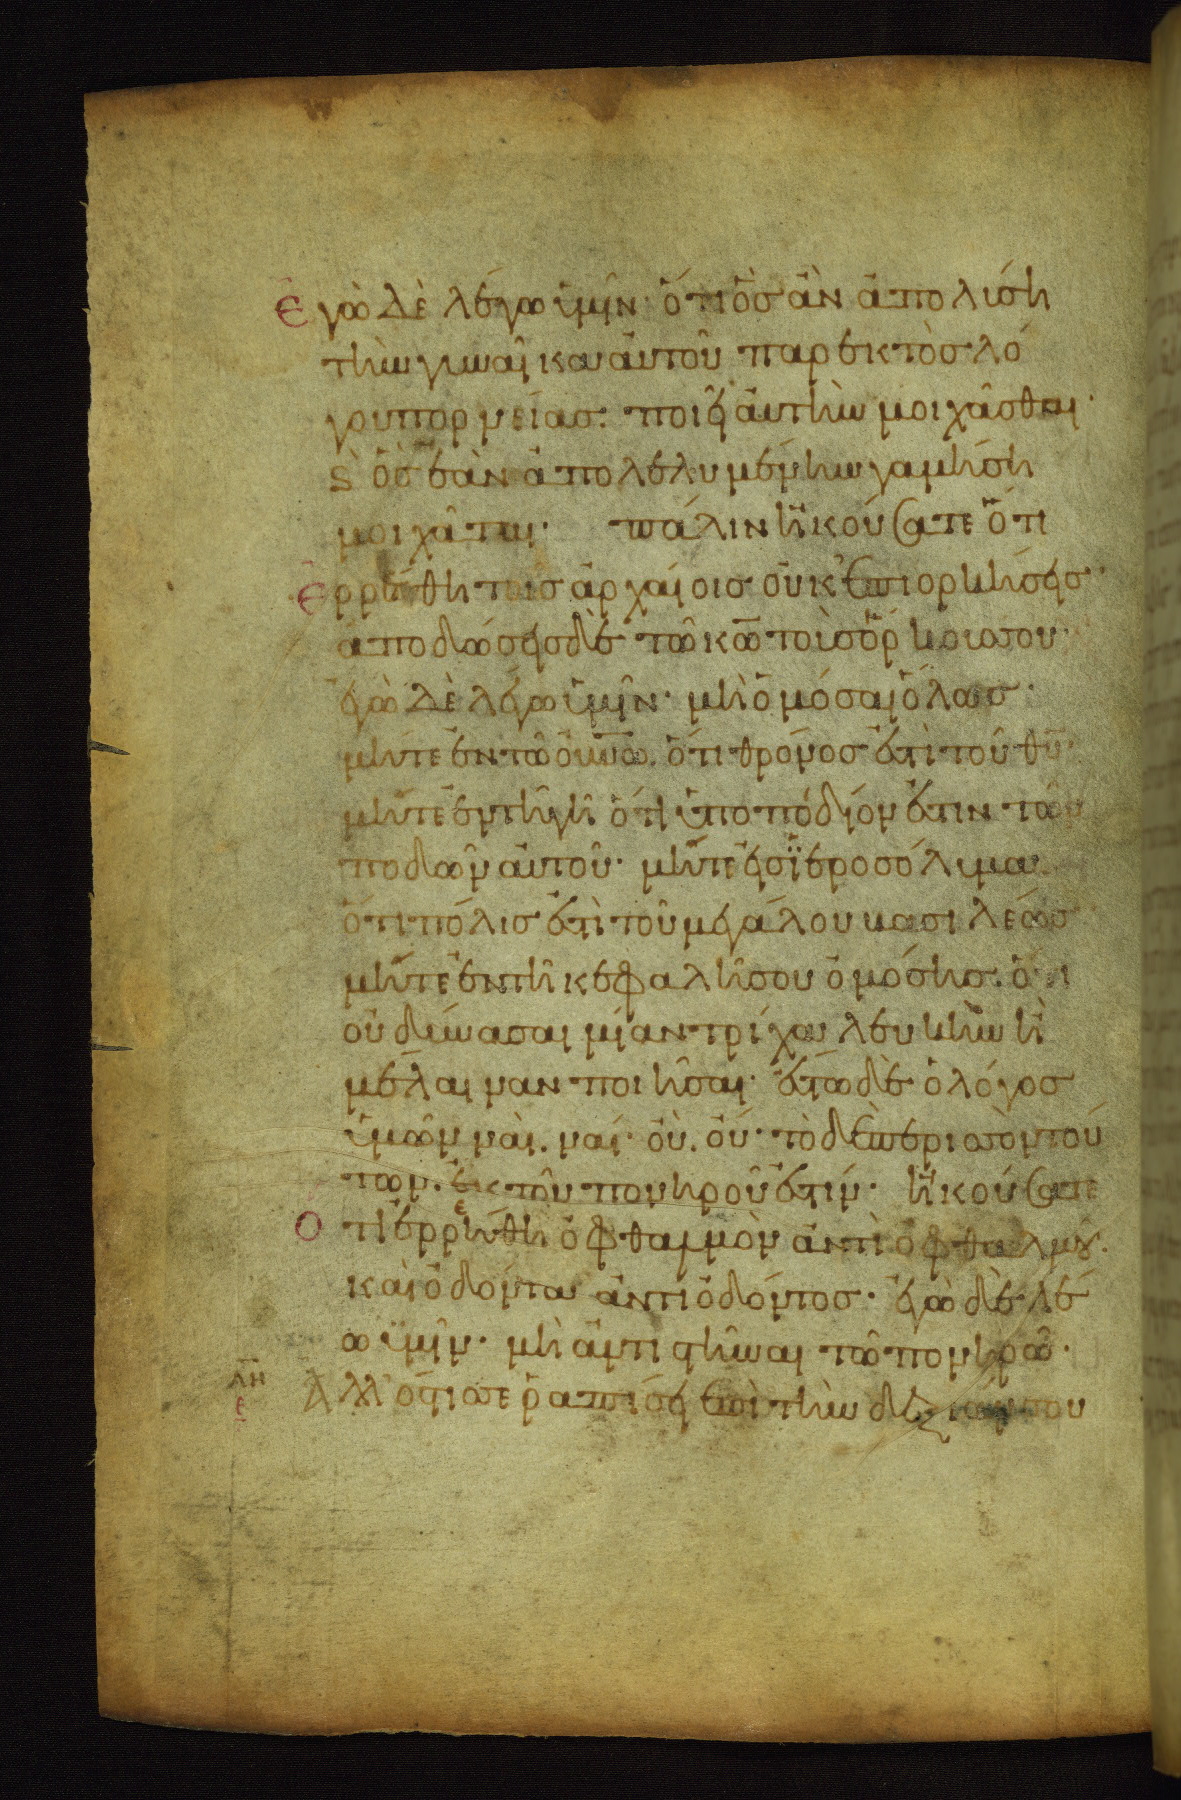 Ἐγὼ δὲ λέγω ὑμῖν· ὅτι ὃς ἂν ἀπολύση
τὴν γυναῖκα αὐτοῦ παρεκτὸς λό
γου πορνείας· ποιεῖ αὐτὴν μοιχᾶσθαι·
ϛ ὃς ἐὰν ἀπολελυμένην γαμήση
μοιχᾶται· πάλιν ἠκούσατε ὅτι
ἐρρήθη τοῖς ἀρχαίοις οὐκ ἐπιορκήσεις·
ἀποδώσεις δὲ τῶ κω̅ τοὺς ὅρκους σου·
ἐγὼ δὲ λέγω ὑμῖν· μὴ ὀμόσαι ὅλως·
μήτε ἐν τῶ οὐνω̅. ὅτι θρόνος ἐστὶ τοῦ θυ̅·
μήτε ἐν τῆ γῆ ὅτι ὑποπόδιον ἐστιν τῶν
ποδῶν αὐτοῦ· μήτε εἰς ϊεροσόλυμα.
ὅτι πόλις ἐστὶ τοῦ μεγάλου βασιλέως·
μήτε ἐν τῆ κεφαλῆ σου ὀμόσης. ὅτι
οὐ δύνασαι μίαν τρίχα λευκὴν ἢ
μέλαιναν ποιῆσαι· ἔστω δὲ ὁ λόγος
ὑμῶν ναὶ. ναί· οὒ. οὔ· τὸ δὲ περισσὸν τού
των. ἐκ τοῦ πονηροῦ ἐστίν· ἠκούσατε
Ὅτι ἐρρήθη ὀφθαλμὸν ἀντὶ ὀφθαλμοῦ.
καὶ ὀδόντα ἀντὶ ὀδόντος· ἐγὼ δὲ λέ
ω ϋμῖν· μὴ ἀντιστῆναι τῶ πονηρῶ·
λη
ε
Ἀλλ' ὅστις σε ῥαπίσει ἐπὶ τὴν δεξιάν σου